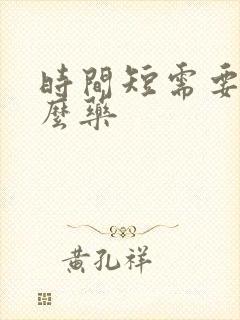 時間短需要
麼藥
黃孔祥